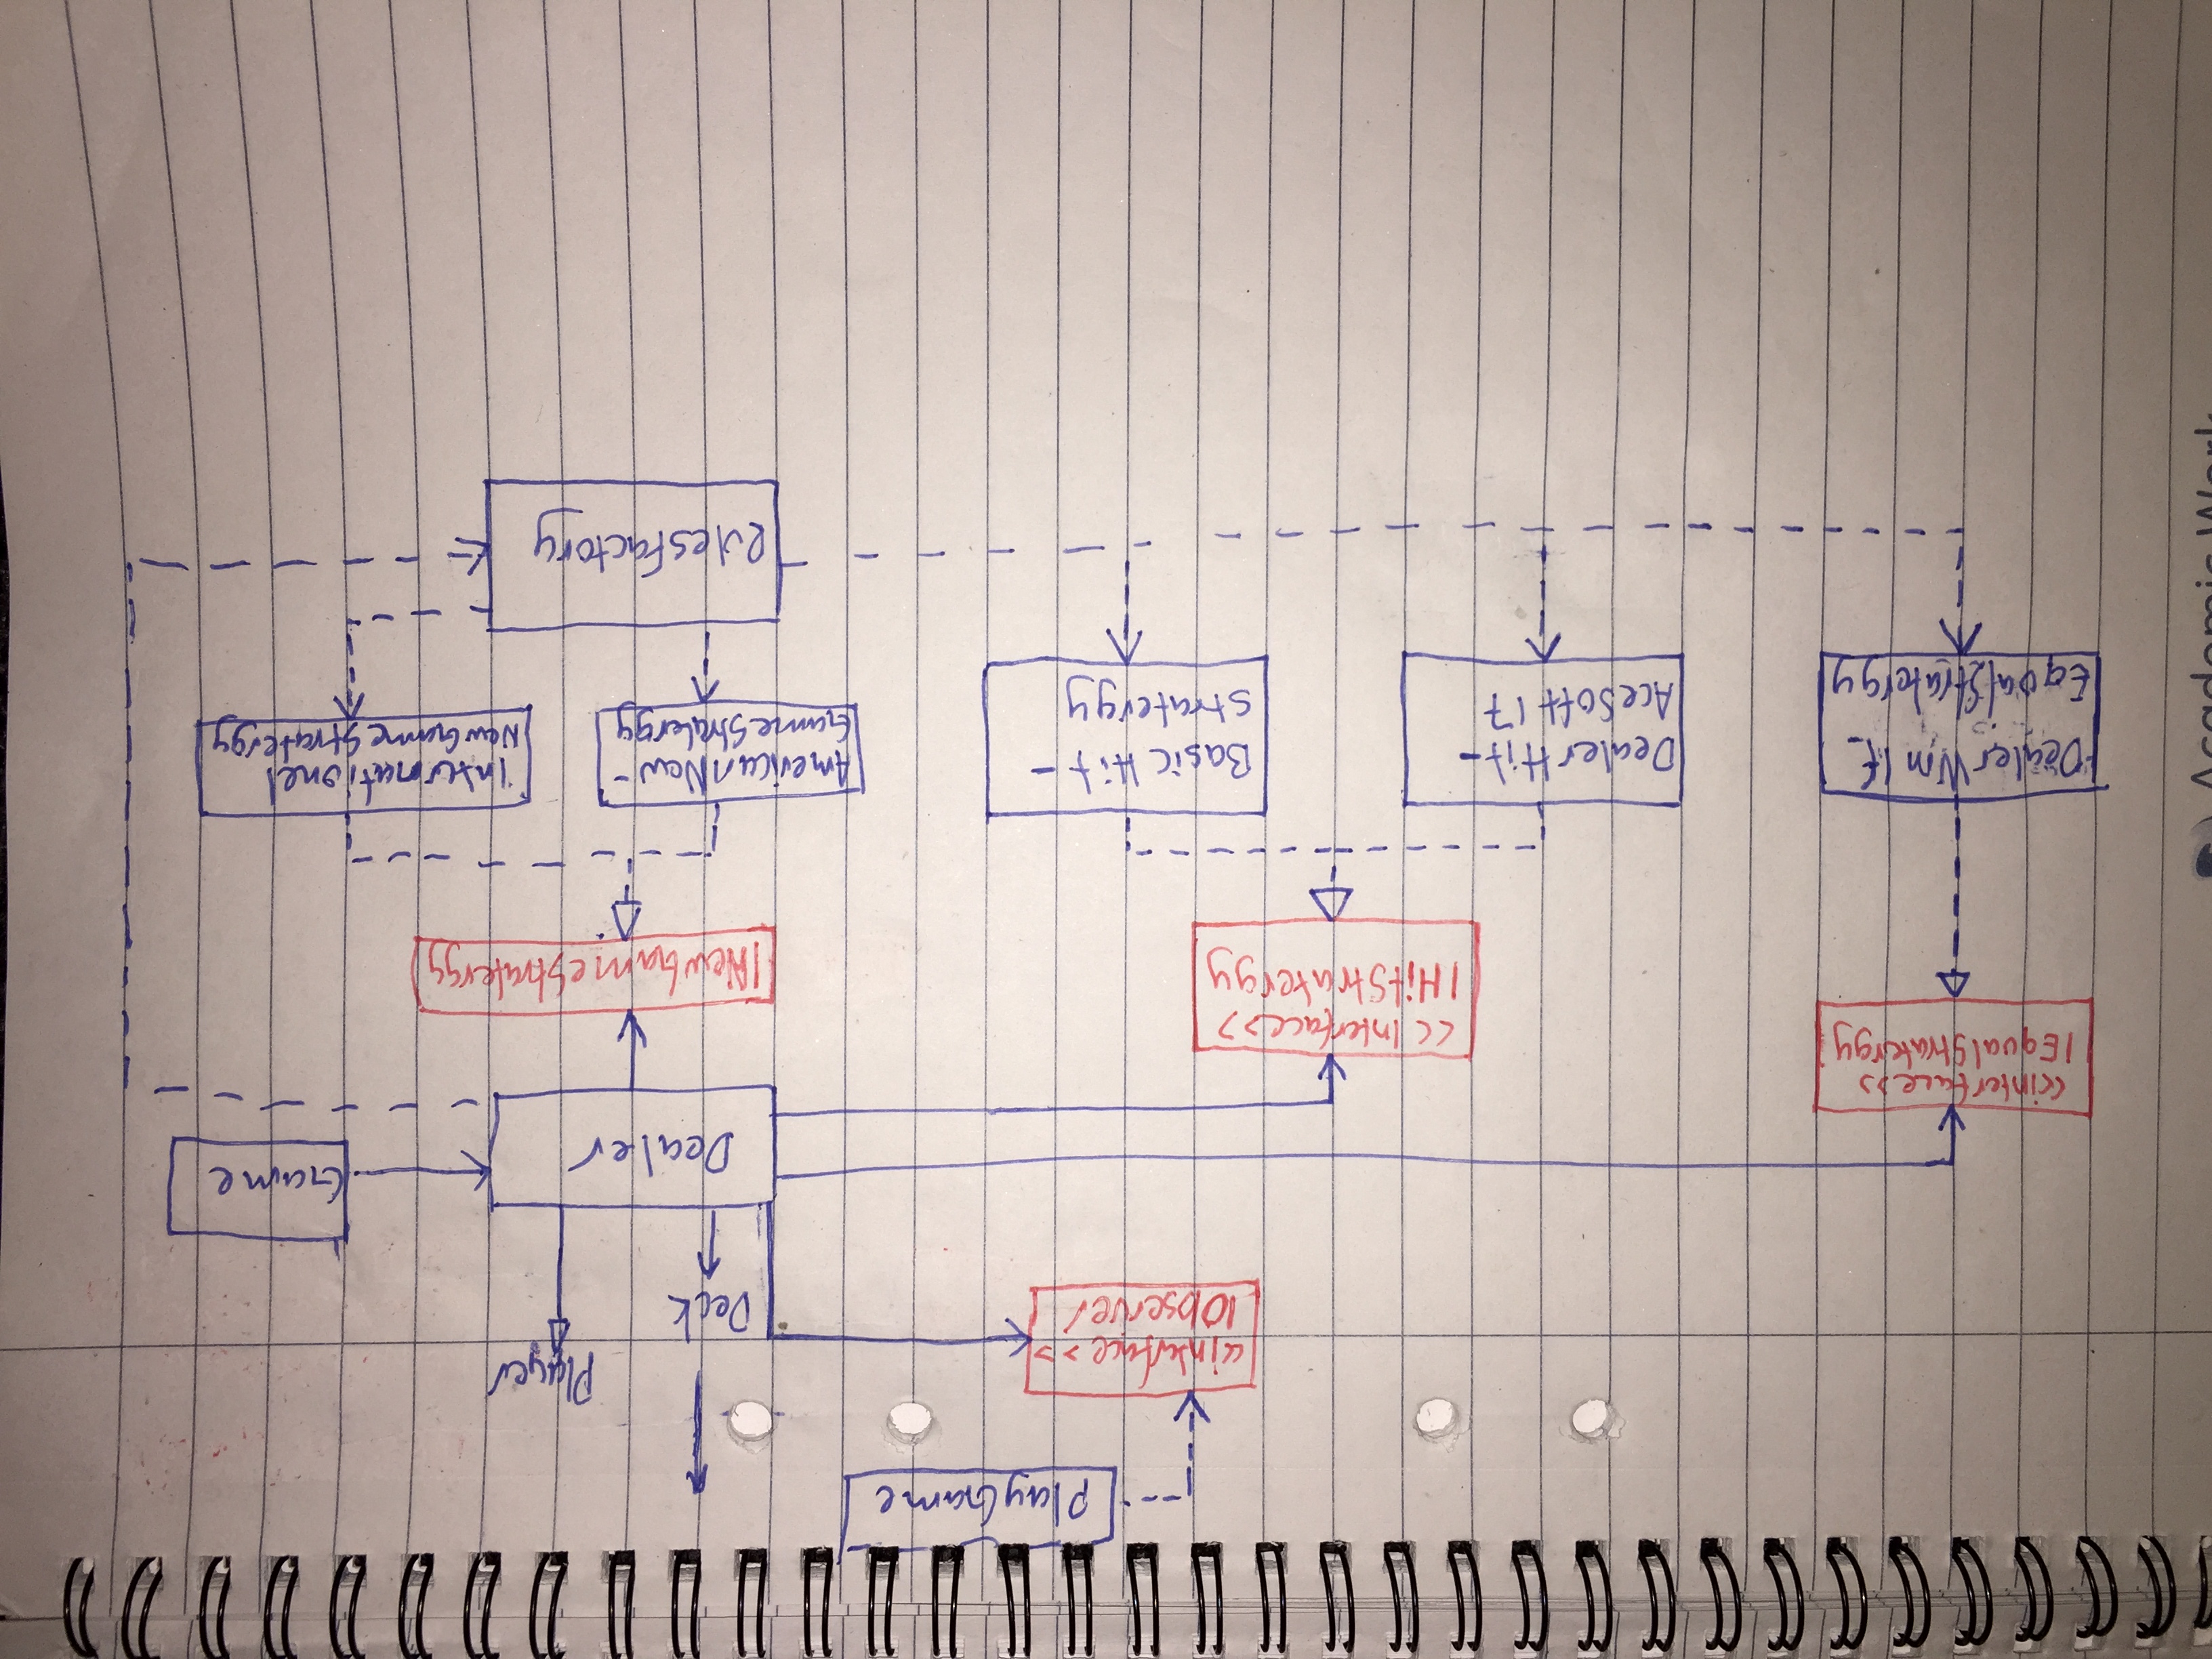 PlayGame
<<interface>>
IObserver
Player
Deck
Game
Dealer
<<interface>>
IEqualStratergy
<<Interface>>
IHitStratergy
INewGameStratergy
DealerWinIf_
EqualStratergy
DealerHit-
AceSoft17
BasicHit-
stratergy
AmericanNew-
GameStratergy
Internationel
NewGameStratergy
RulesFactory
Academic Work